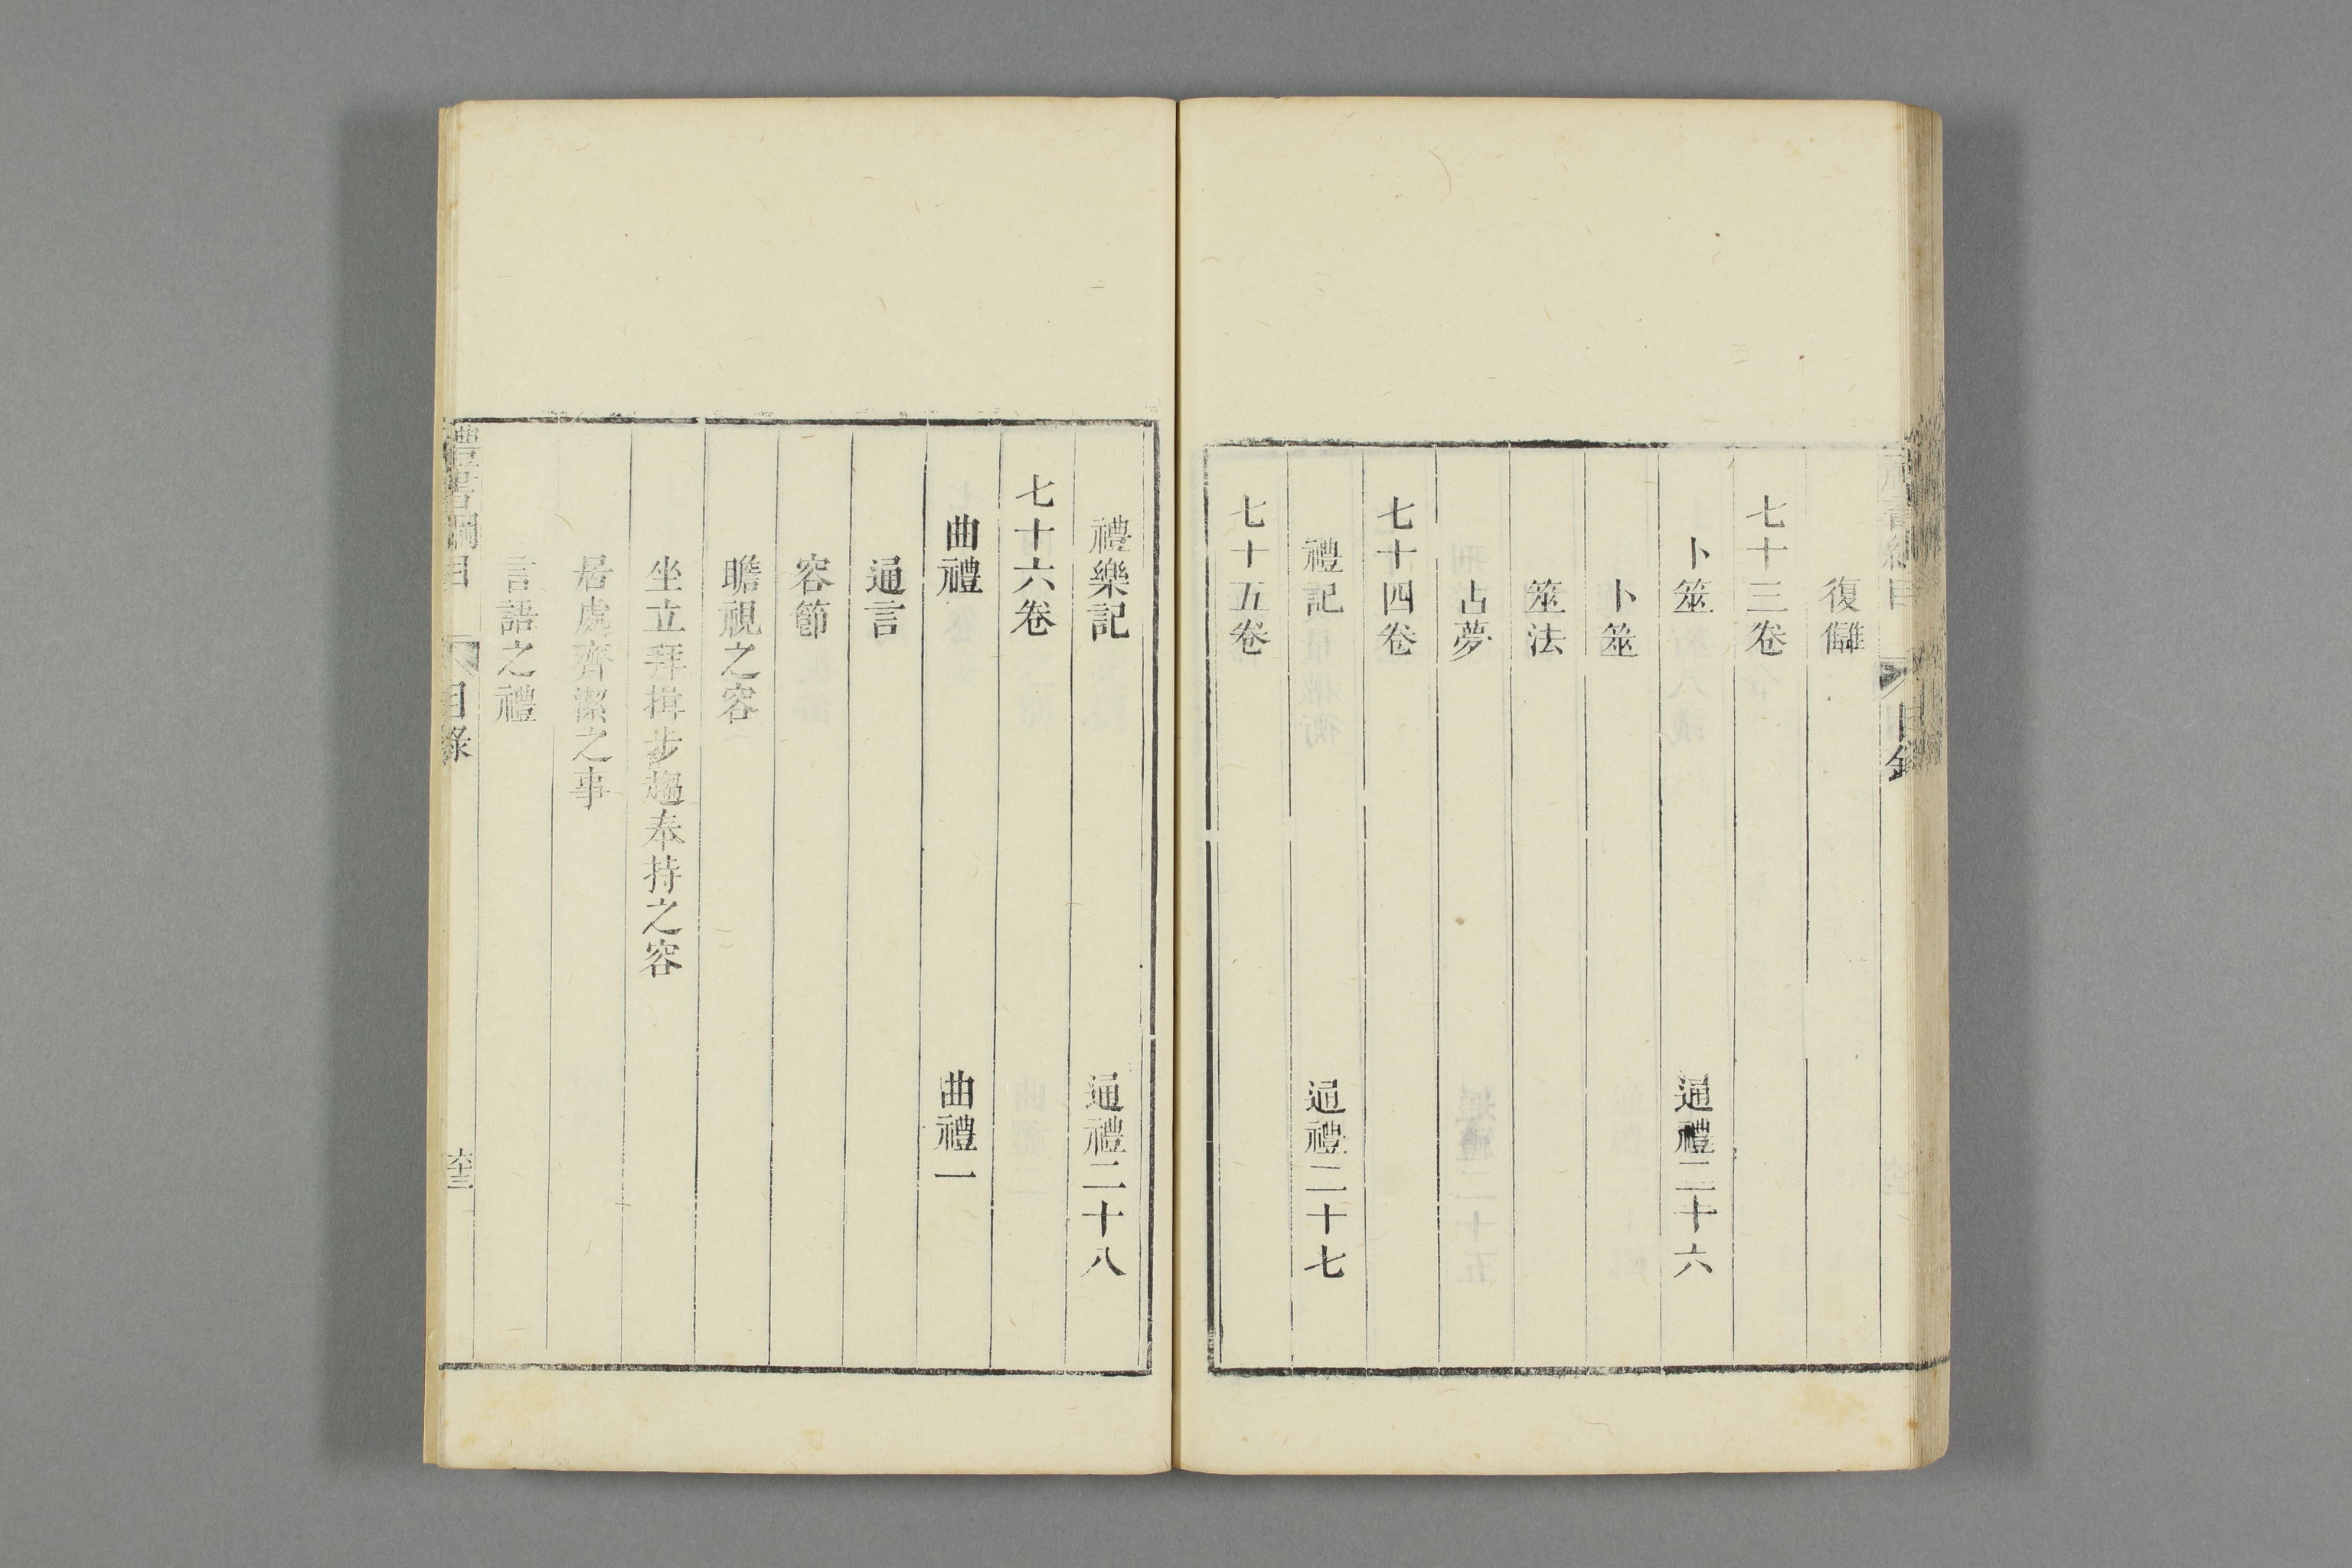 復讎
七十三卷
卜筮　通禮二十六
卜筮
筮法
占夢
七十四卷
禮記　通禮二十七
七十五卷
禮樂記　通禮二十八
七十六卷
曲禮　曲禮一
通言
容節
瞻視之容
坐立拜揖步趨奉持之容
居處齊潔之事
言語之禮
禮書綱目　目錄　六十三